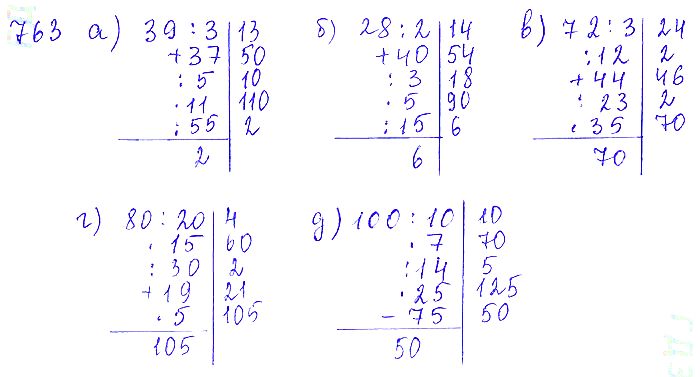 763 а) 39 : 3 | 13
+ 37 | 50
: 5 | 10
· 11 | 110
: 55 | 2
2
б) 28 : 2 | 14
+ 40 | 54
: 3 | 18
· 5 | 90
: 15 | 6
6
в) 72 : 3 | 24
: 12 | 2
+ 44 | 46
: 23 | 2
· 35 | 70
70
г) 80 : 20 | 4
· 15 | 60
: 30 | 2
+ 19 | 21
· 5 | 105
105
д) 100 : 10 | 10
· 7 | 70
: 14 | 5
· 25 | 125
- 75 | 50
50